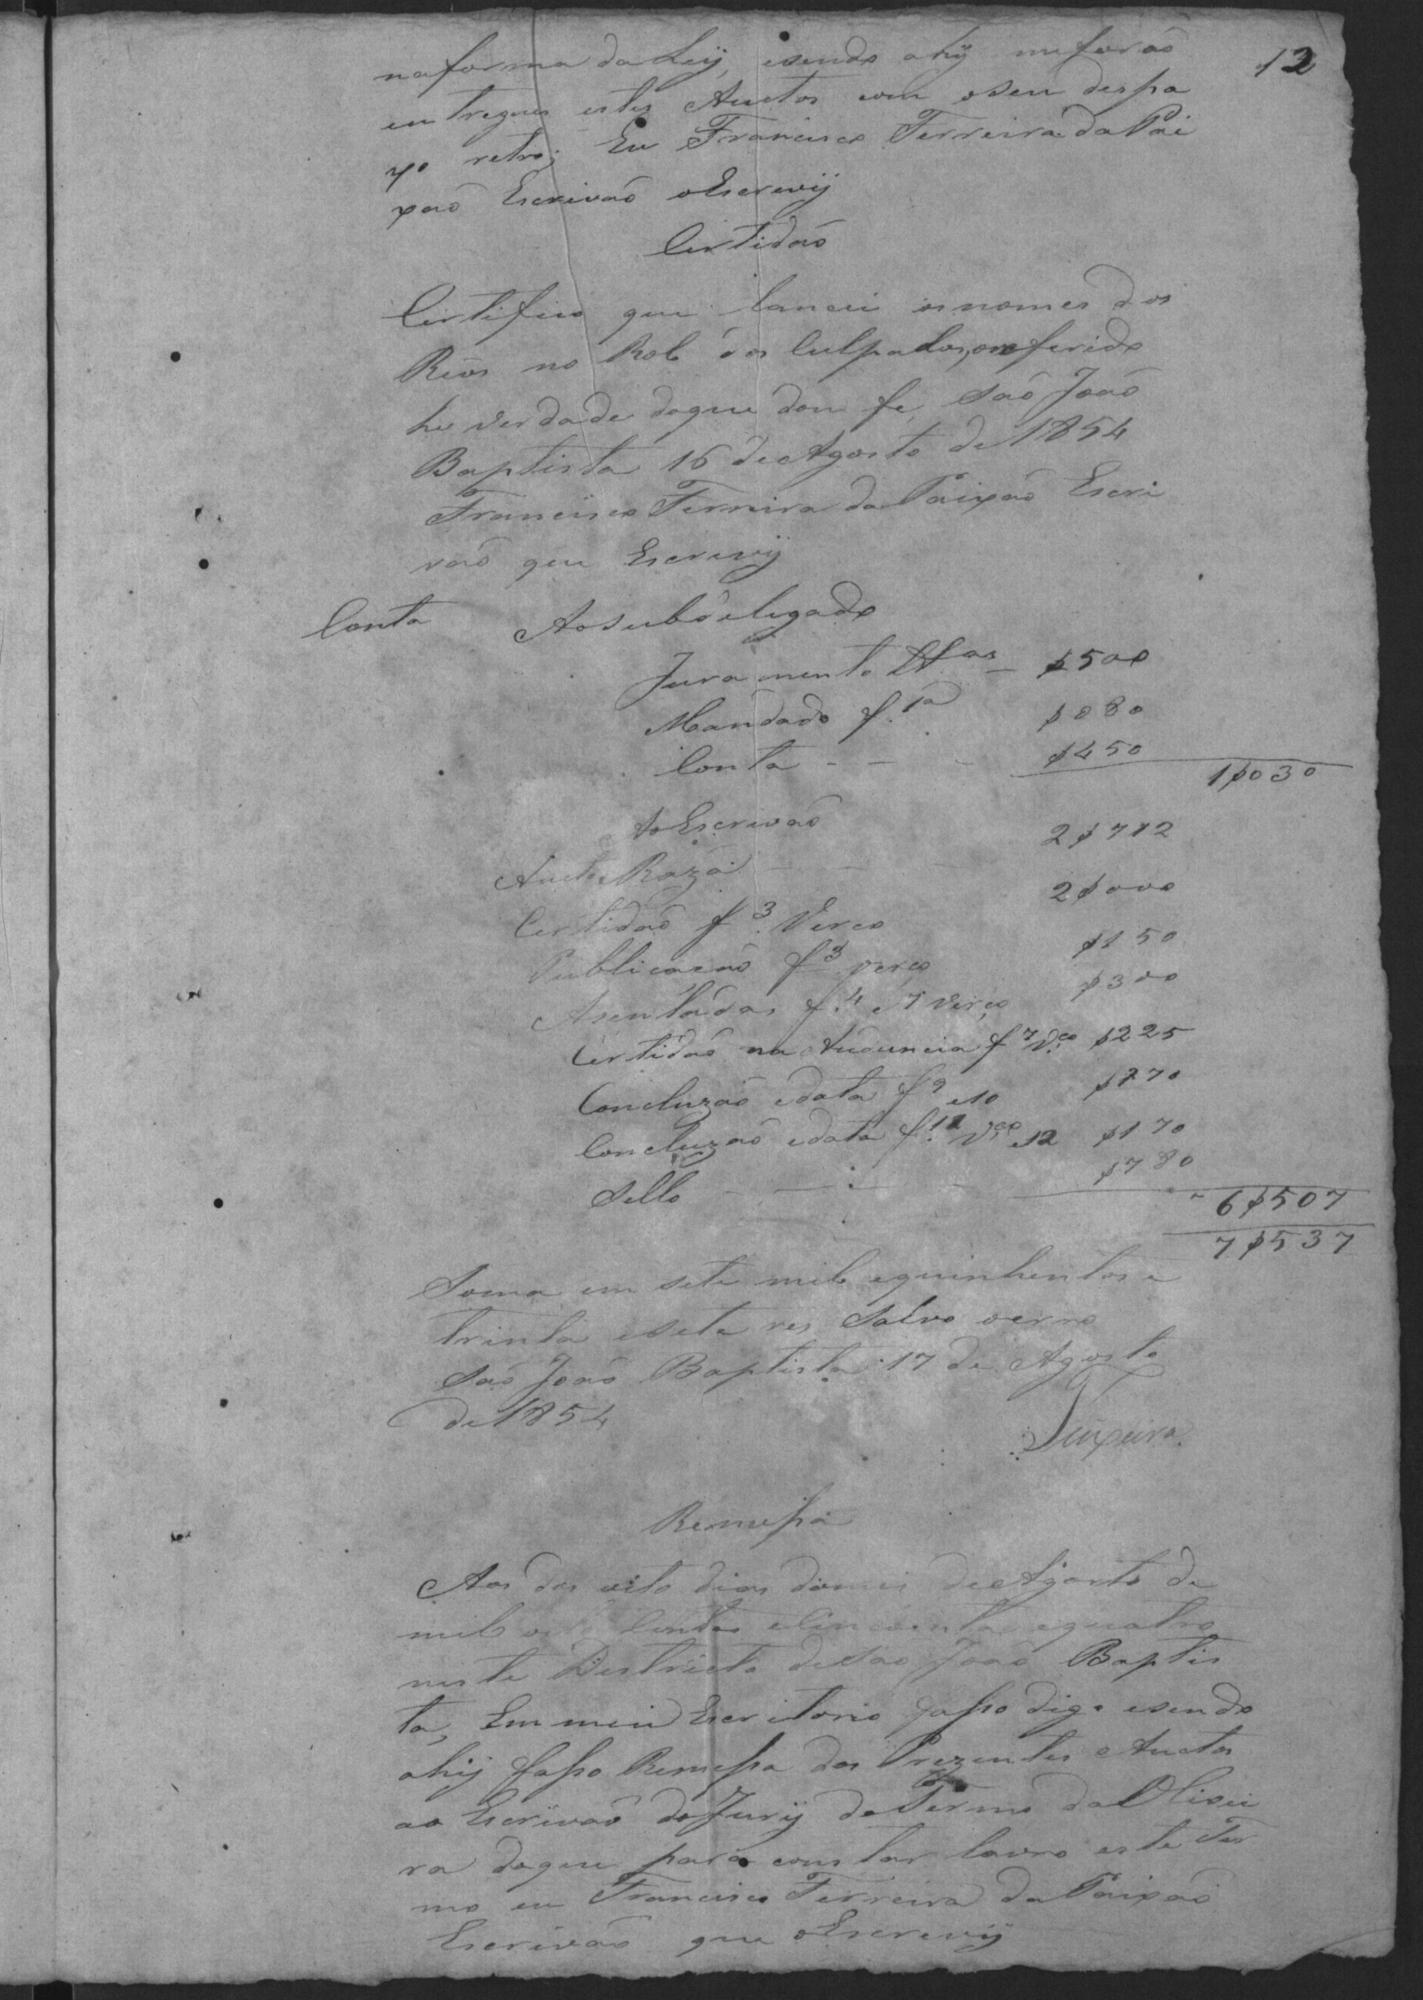 12
na forma da Leÿ, e sendo ahÿ me forão
entregues estes Auctos com o seu despa
xo retro; Eu Francisco Ferreira da Pai
xão Escrivão o Escrevÿ
Certidão
Certifico que lancei os nomes dos
Réos no Rol dos Culpados, o referido
he verdade do que dou fe, São João
Baptista 16 de Agosto de 1854
Francisco Ferreira da Paixão Escri
vão que Escrevÿ
Conta Ao subdelegado
Juramento $500
Mandado f. 1a $080
Conta - - - $450
1$030
Ao Escrivão
Auctos Raza - - 2$712
Certidão f 3 Verco 2$000
Publicação f 3 verço $150
Asentadas f. 4 e 7 verço $300
Certidão na Audiencia f 7 Vco $225
Concluzão e data f 9 e 10 $170
Concluzão e data f. 11 Vço e 12 $170
Sello $780
6$507
7$537
Soma em sete mil e quinhentos e
trinta e sete res Salvo o erro
São João Baptista 17 de Agosto
de 1854
Teixeira
Remessa
Aos des oito dias do mes de Agosto de
mil oito Centos e Cincoenta e quatro
neste Destricto de São João Baptis
ta, Em meu Escritorio fasso digo e sendo
ahÿ fasso Remessa dos Prezentes Auctos
ao Escrivão do Jurÿ do Termo da Olivei
ra do que para constar lavro este Ter
mo eu Francisco Ferreira da Paixão
Escrivão que o Escrevÿ